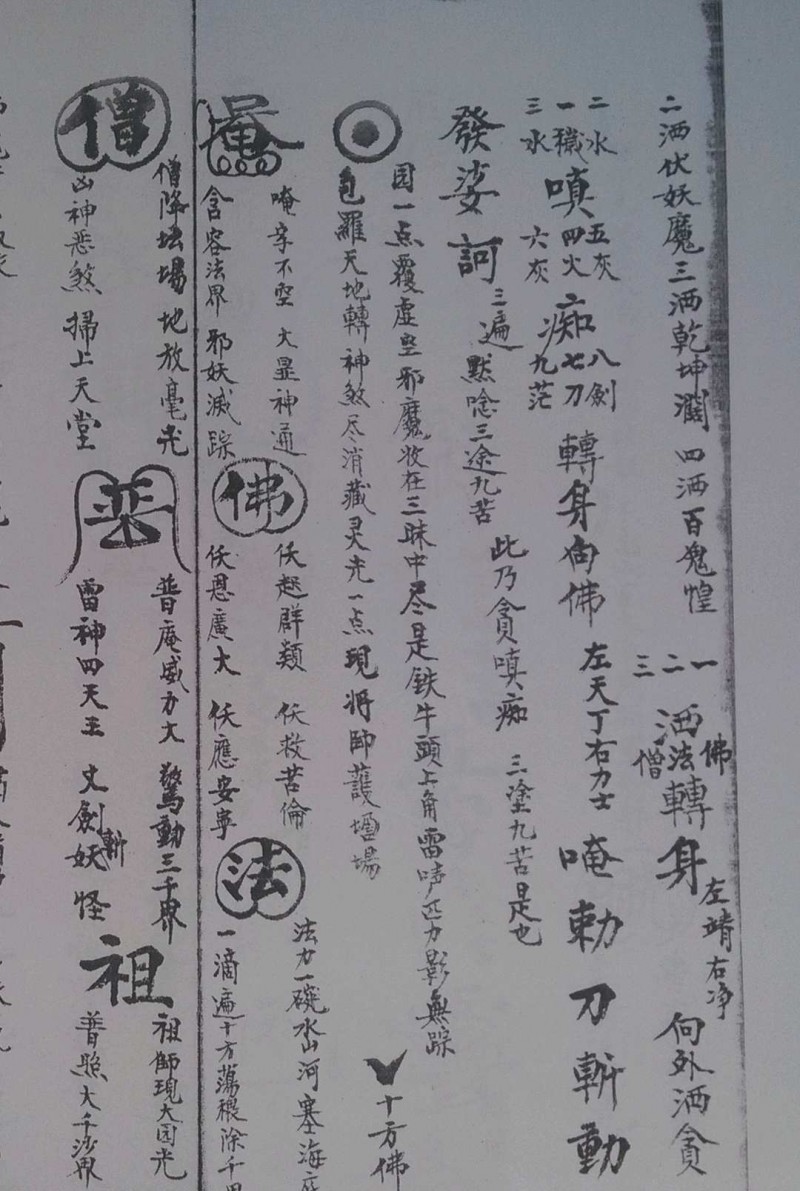 二洒伏妖魔三洒乾坤濶四洒百鬼惶
一二三
洒
佛法僧
轉身
左靖右净
向外洒貪
二水一穢三水
嗔
五灰四火六灰
痴
八劍七刀九茫
轉身向佛
左天丁右力士
唵勅刀斬動
發娑訶
三遍
默唸三途九苦
此乃貪嗔痴 三塗九苦是也
园一点覆虚空邪魔收在三昧中尽是铁牛頭上角雷吽匹力影無踪
包羅天地轉神煞尽消藏灵光一点現将師護壇場
十方佛
唵字不空 大显神通
含容法界 邪妖滅踪
佛
伏起群類 伏救苦倫
伏恩廣大 伏應安寧
法
法力一碗水山河塞海
一滴遍十方蕩穢除千
僧
僧降坛場 地放毫光
凶神恶煞 掃上天堂
普庵威力大 驚動三千界
雷神四天王 丈劍斬妖怪
祖
祖師現大园光
普照大千沙界